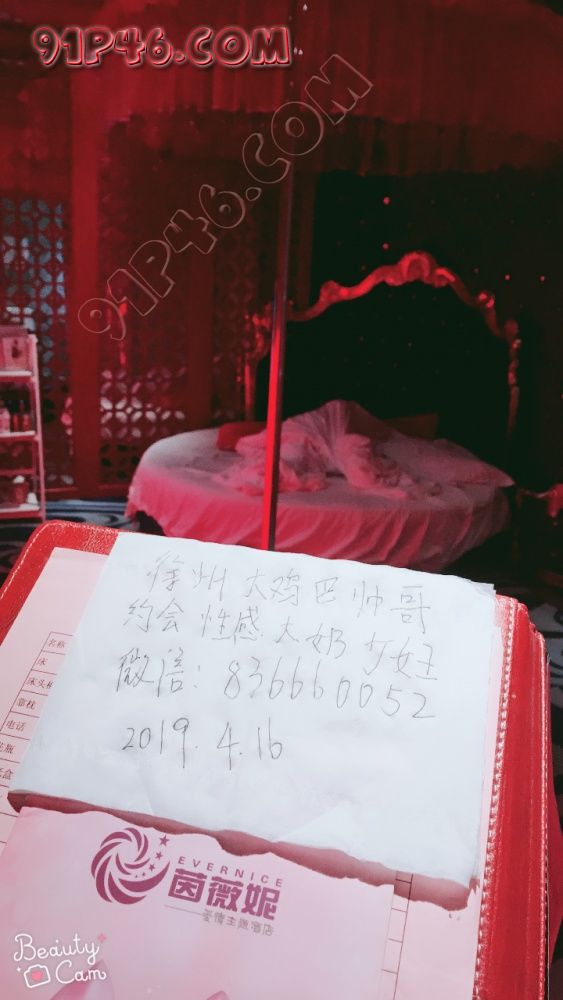 91P46.COM
91P46.COM
徐州大鸡巴帅哥
约会性感大奶女王
微信: 836660052
2019.4.16
名称
床
床头柜
靠枕
电话
花瓶
EVERNICE
茵薇妮
爱情主题酒店
Beauty
Cam